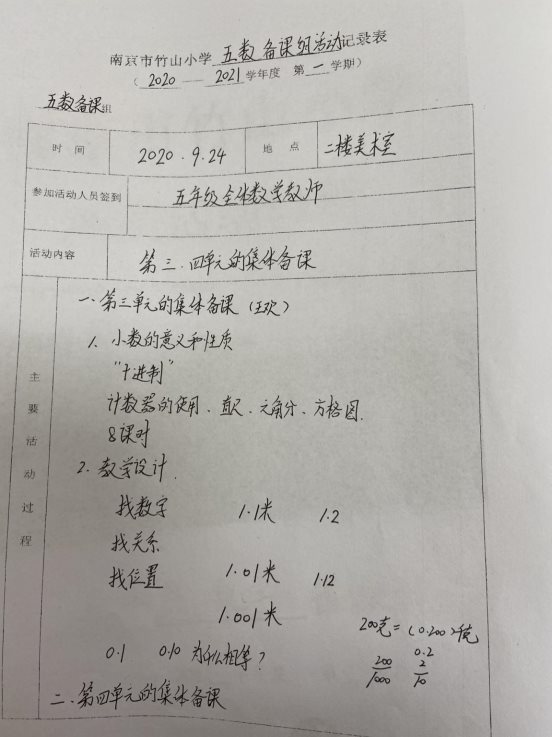 南京市竹山小学 五数备课组活动记录表
( 2020 — 2021 学年度 第 一 学期)
五数备课组
时 间 2020.9.24 地 点 二楼美术室
参加活动人员签到 五年级全体数学教师
活动内容 第三.四单元的集体备课
主要活动过程
一. 第三单元的集体备课 (王欢)
1. 小数的意义和性质
"十进制"
计数器的使用、直尺、元角分、方格图.
8课时
2. 教学设计.
找数字 1.1米 1.2
找关系
找位置 1.01米 1.12
1.001米
200克=(0.200)千克
0.1 0.10 为什么相等? 0.2
200/1000 2/10
二. 第四单元的集体备课